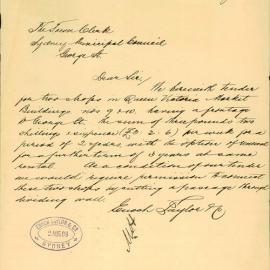 The Town Clerk
Sydney Municipal Council
George St.
Dear Sir,
We herewith tender
for two shops in Queen Victoria Market
Buildings nos 9 & 10, having a frontage
to George St. the sum of three pounds two
shillings & sixpence (£3. 2. 6) per week for a
period of 2 years, with the option of renewal
for a further term of 3 years at same
rental. As a condition of our tender
we would require permission to connect
these two shops by cutting a passage through
dividing wall.
Enoch Taylor & Co
ENOCH TAYLOR & CO
2 AUG 09
SYDNEY